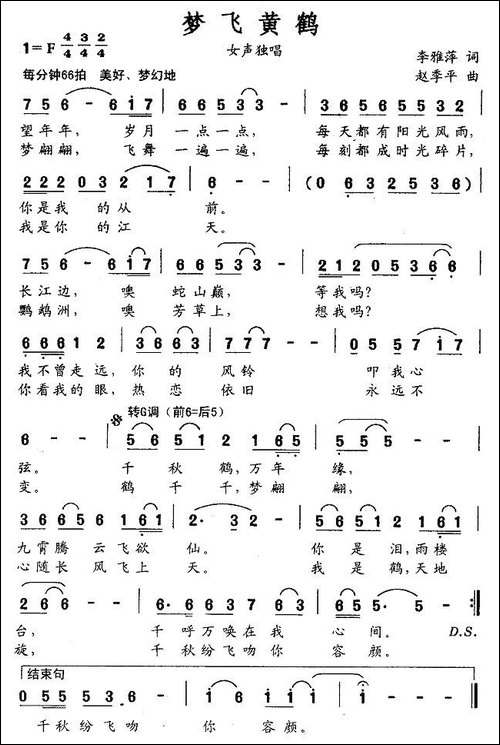 梦飞黄鹤
1=F 4/4 3/4 2/4
女声独唱
李雅萍 词
赵季平 曲
每分钟66拍 美好、梦幻地
7 5 6 - 6 1 7 | 6 6 5 3 3 - | 3 6 5 6 5 5 3 2 |
望年年， 岁月 一点一点， 每天都有阳光风雨，
梦翩翩， 飞舞 一遍一遍， 每刻都成时光碎片，
2 2 2 0 3 2 1 7 | 6 - - | (0 6 3 2 5 3 6) |
你是我 的从 前。
我是你 的江 天。
7 5 6 - 6 1 7 | 6 6 5 3 3 - | 2 1 2 0 5 3 6 6 |
长江边， 噢 蛇山巅， 等我吗？
鹦鹉洲， 噢 芳草上， 想我吗？
6 6 6 1 2 | 3 6 3 | 7 7 7 - - | 0 5 5 7 1 7 |
我不曾走远，你的 风铃 叩我心
你看我的眼，热恋 依旧 永远不
转G调（前6=后5）
6 - - | 5 6 5 1 2 1 6 5 | 5 5 5 - |
弦。 千秋鹤，万年 缘，
变。 鹤千千，梦翩 翩，
3 6 6 6 5 6 1 6 1 | 2· 3 2 - | 3 5 6 5 1 2 1 6 1 |
九霄腾 云飞欲 仙。 你是泪，雨楼
心随长 风飞上 天。 我是鹤，天地
2 6 6 - - | 6· 6 6 3 7 6 3 | 6 6 5 5 5 - - |
台， 千呼万唤在我 心间。 D.S.
旋， 千秋纷飞吻你 容颜。
结束句
0 5 5 5 5 3 6 - | - - 1 6 | 1 1 1 - - | 1 - - 0 |
千秋纷飞吻 你 容颜。